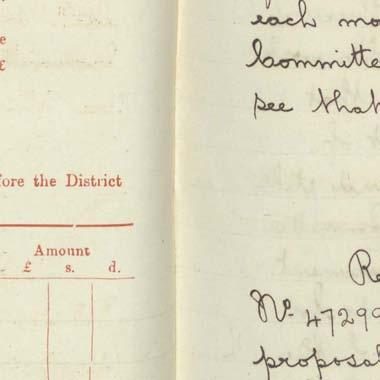 e
£
fore the District
Amount
£ s. d.
each mo
Committe
see that
Re
No. 47299
proposal